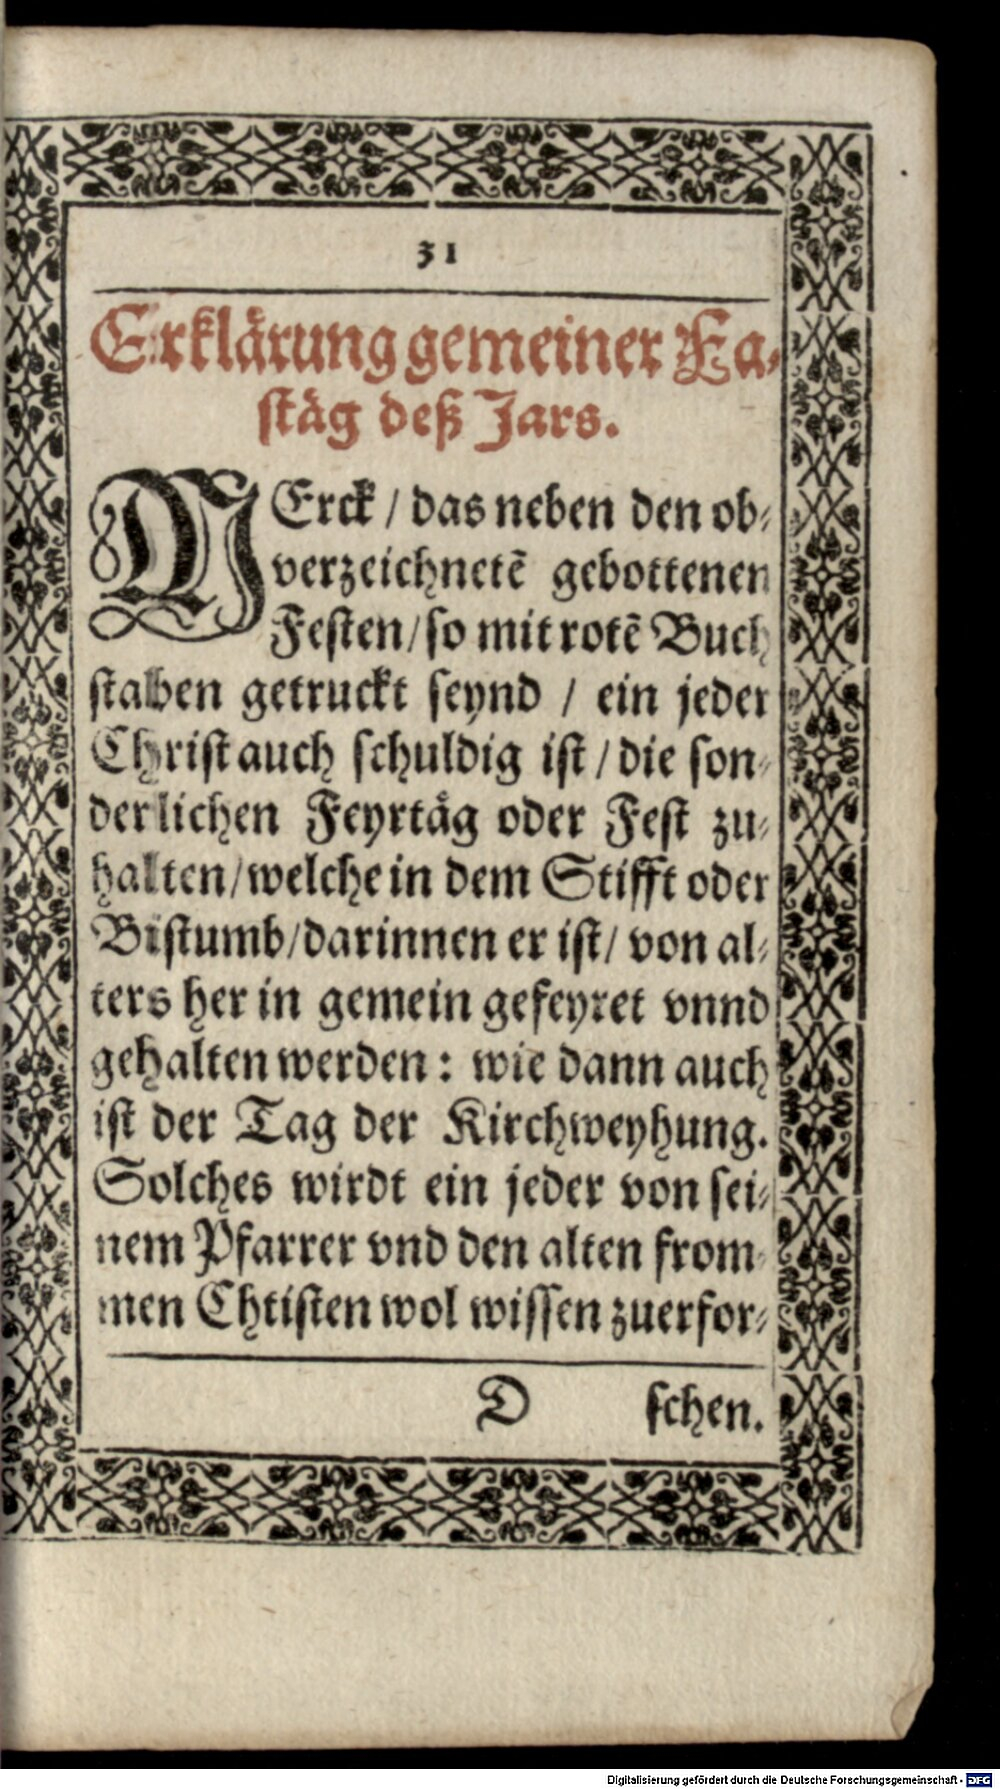 31
Erklärung gemeiner Fa-
stäg deß Jars.
MErck / das neben den ob-
verzeichnetẽ gebottenen
Festen / so mit rotẽ Buch
staben getruckt seynd / ein jeder
Christ auch schuldig ist / die son-
derlichen Feyrtåg oder Fest zu-
halten / welche in dem Stifft oder
Bistumb / darinnen er ist / von al-
ters her in gemein gefeyret vnnd
gehalten werden : wie dann auch
ist der Tag der Kirchweyhung.
Solches wirdt ein jeder von sei-
nem Pfarrer vnd den alten from-
men Chtisten wol wissen zuerfor-
D schen.
Digitalisierung gefördert durch die Deutsche Forschungsgemeinschaft - DFG